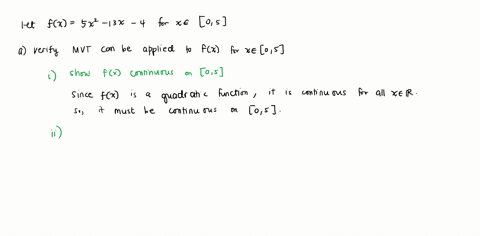 Let f(x) = 5x² - 13x - 4 for x∈ [0,5]
a) verify MVT can be applied to f(x) for x∈[0,5]
i) show f(x) continuous on [0,5]
Since f(x) is a quadratic function, it is continuous for all x∈ℝ.
So, it must be continuous on [0,5].
ii)